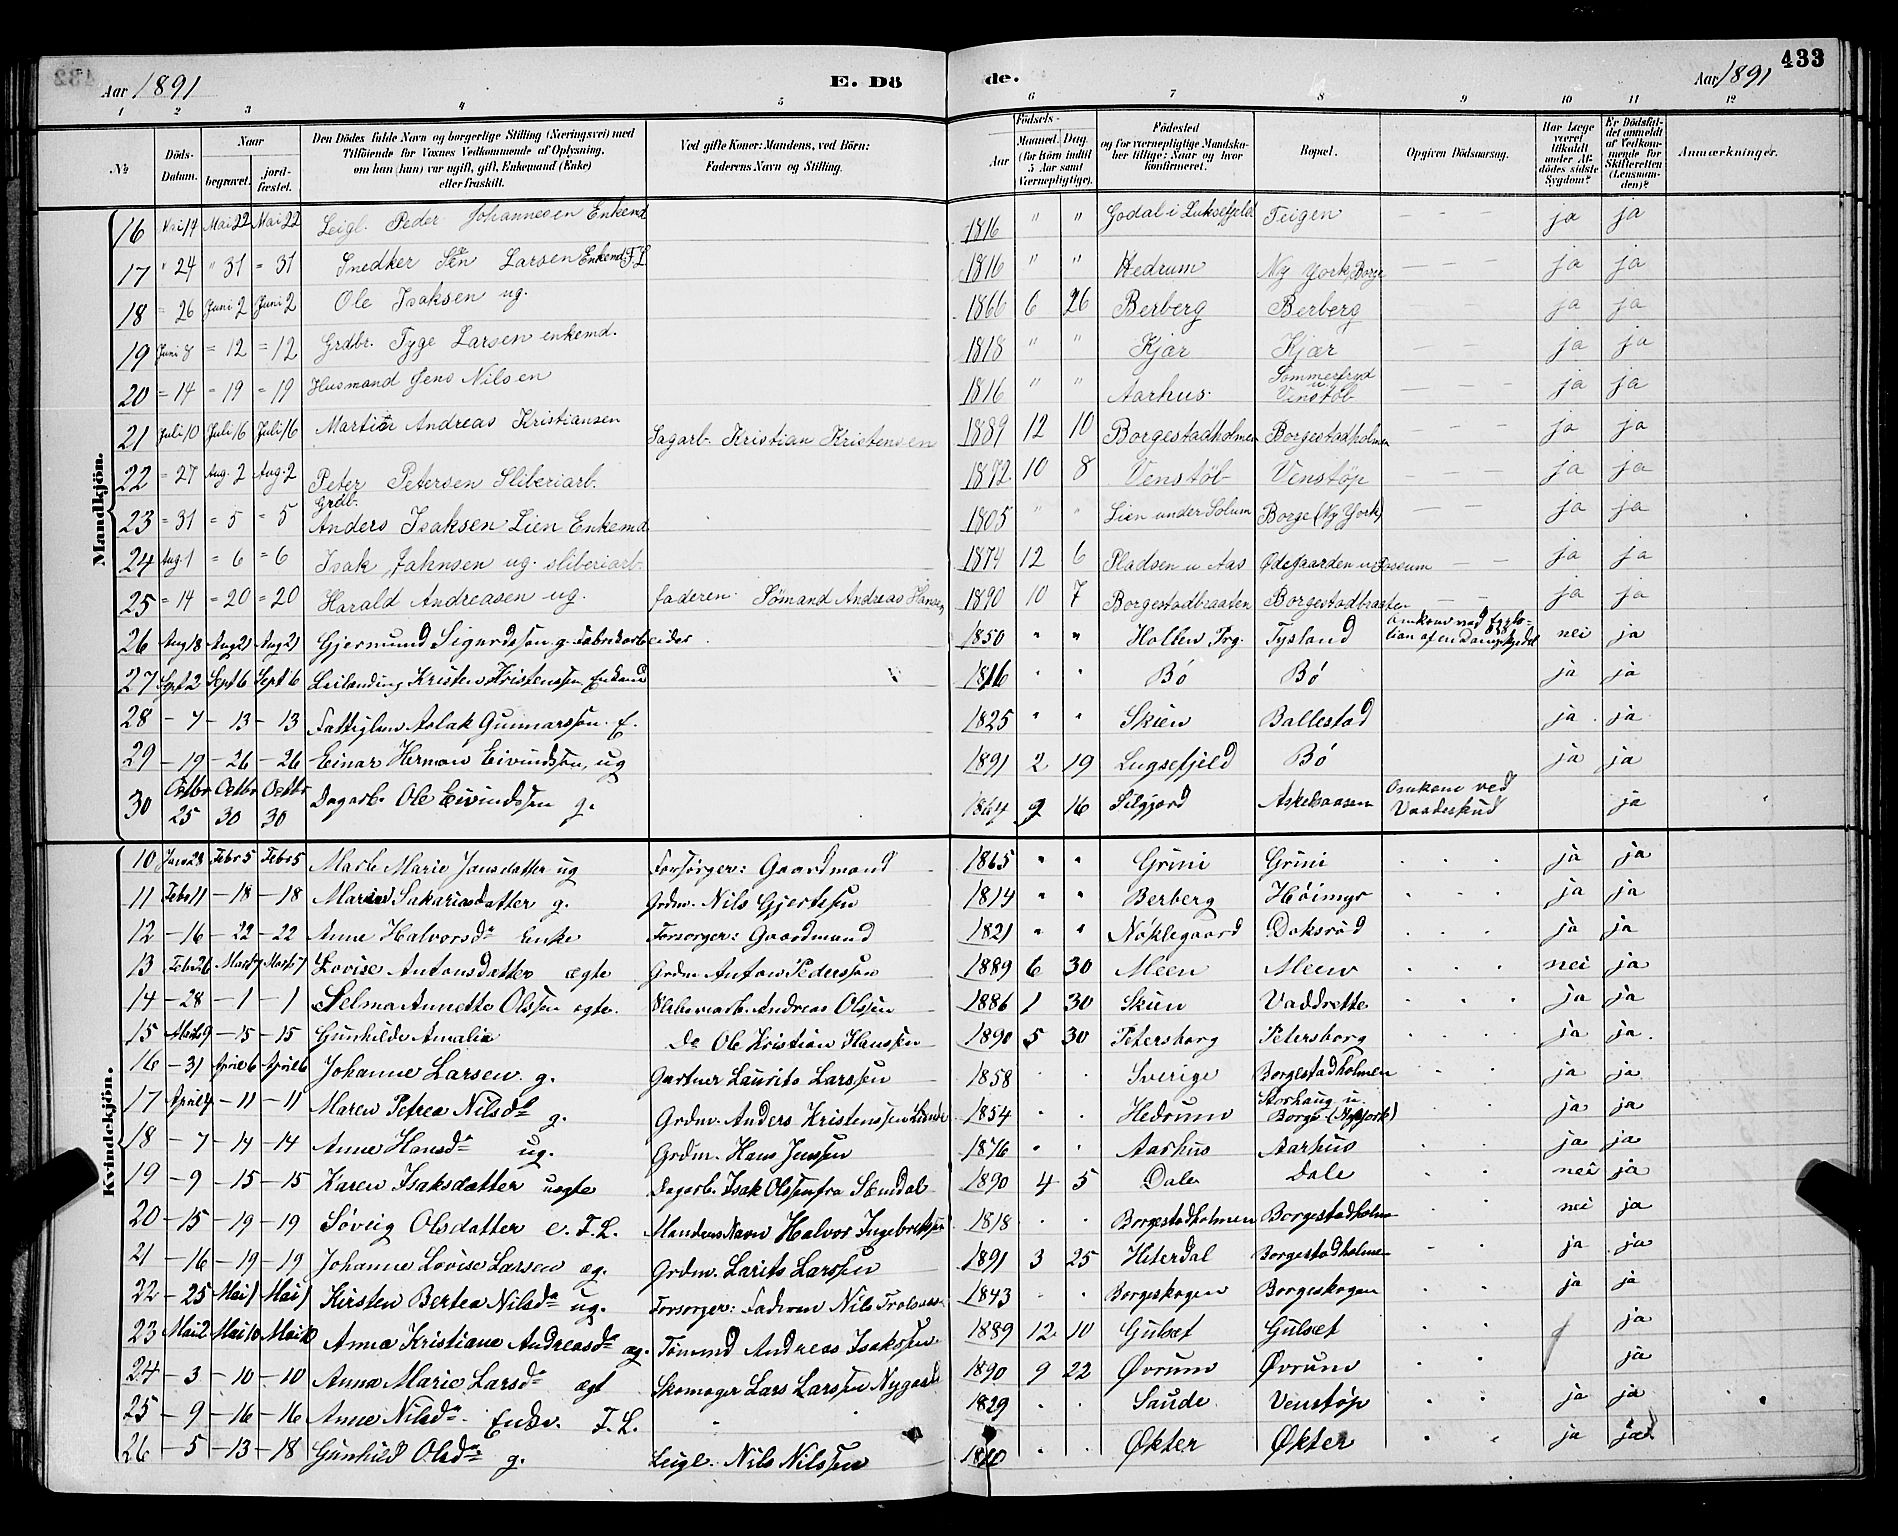 Aar 1891 E. Döde. Aar 1891 433
1 2 3 4 5 6 7 8 9 10 11 12
No Döds-Datum. Naar begravet. jordfæstet. Den Dödes fulde Navn og borgerlige Stilling (Næringsvei) med Tilföiende for Voxnes Vedkommende af Oplysning, om han (hun) var ugift, gift, Enkemand (Enke) eller fraskilt. Ved gifte Koner: Mandens, ved Börn: Faderens Navn og Stilling. Födsels- Aar Maaned. Dag. (for Börn indtil 5 Aar samt Værnepligtige). Födested og for værnepligtige Mandskaber tillige: Naar og hvor konfirmeret. Bopæl. Opgiven Dödsaarsag. Har Læge været tilkaldt under Afdödes sidste Sygdom? Er Dödsfaldet anmeldt af Vedkommende for Skifteretten (Lensmanden)? Anmærkninger.
Mandkjön.
16 Mai 14 Mai 22 Mai 22 Leigl. Peder Johannesen Enkemd 1816 " " Godal i Luksefjeld Teigen – – – ja ja
17 " 24 " 31 = 31 Snedker Larsen Enkemd. F.L. 1816 " " Hedrum Ny York Borge – – – ja ja
18 = 26 Juni 2 Juni 2 Ole Isaksen ug. 1866 6 26 Berberg Berberg – – – ja ja
19 Juni 8 = 12 = 12 Grdbr. Tyge Larsen enkemd. 1818 " " Kjær Kjær – – – ja ja
20 = 14 = 19 = 19 Husmand Jens Nilsen 1816 " " Aarhus. Sommerfryd u Venstöb – – – ja ja
21 Juli 10 Juli 16 Juli 16 Martin Andreas Kristiansen Sagarb. Kristian Kristensen 1889 12 10 Borgestadholmen Borgestadholmen – – – ja ja
22 = 27 Aug. 2 Aug. 2 Peter Petersen Sliberiarb. 1872 10 8 Venstöb Venstöp – – – ja ja
23 = 31 = 5 = 5 Grdb. Anders Isaksen Lien Enkemd 1805 " " Lien under Solum Borge (Ny York) – – – ja ja
24 Aug. 1 = 6 = 6 Isak Jahnsen ug. sliberiarb. 1874 12 6 Pladsen u Aas Ødegaarden u. Fossum – – ja ja
25 = 14 = 20 = 20 Harald Andreasen ug. faderen. Sömand Andreas Hansen 1890 10 7 Borgestadbraaten Borgestadbraaten – – ja ja
26 Aug 18 Aug 21 Aug 21 Gjermund Sigurdssen g. Fabrikarbeider. 1850 " " Holten Prg. Tysland Omkom ved Explotion af en Dampkjedel nei ja
27 Sept 2 Sept 6 Sept 6 Leilænding Kristen Kristenssen Enkemd 1816 " " Bö Bö ja ja
28 – 7 – 13 – 13 Fattiglem Aslak Gunnarssen. E. 1825 " " Skien Ballestad ja ja
29 – 19 – 26 – 26 Einar Herman Eivindssen, ug 1891 2 19 Lugsefjeld Bö ja ja
30 Octbr 25 Octbr 30 Octbr 30 Dagarb. Ole Eivindssen g. 1864 9 16 Silgjord Askelaasen Omkom ved Vaadeskud ja
Kvindekjön.
10 Janr 23 Febr 5 Febr 5 Marie Jansdatter ug Forsörger: Gaardmand 1865 " " Grini Grini . . . ja ja
11 Febr 11 – 18 – 18 Maren Sakariasdatter g. Grdm. Nils Gjertsen 1814 " " Berberg Höimyr . ja ja
12 – 16 – 22 – 22 Anne Halvorsd. Enke Forsorger: Gaardmand 1821 " " Nöklegaard Doksröd . . . ja ja
13 Febr 26 Marts 7 Marts 7 Lovise Antonsdatter ægte Grdm Anton Pederssen 1889 6 30 Meen Meen . . . nei ja
14 – 28 – 1 – 1 Selma Annette Olssen ægte. Sliberiarb. Andreas Olssen 1886 1 30 Skien Vaddrette . . . ja ja
15 Marts 9 – 15 – 15 Gunhilde Amalia Do Ole Kristian Hanssen 1890 5 30 Petersborg Petersborg . . . ja ja.
16 – 31 April 6 April 6 Johanne Larsen. g. Gartner Laurits Larssen 1858 . . Sverige Borgestadholmen . . ja ja
17 April 4 – 11 – 11 Maren Petrea Nilsd. g. Grdm. Anders Kristenssen 1854 . . Hedrum Storhaug u. Borge (Ny York) . . ja ja
18 – 7 – 14 – 14 Anne Hansd. ug. Grdm. Hans Jenssen 1876 . . Aarhus Aarhus . . ja ja
19 – 9 – 15 – 15 Karen Isaksdatter uægte Dagarb. Isak Olssen fra Slemdal 1890 4 5 Dale Dale . . nei ja
20 – 15 – 19 – 19 Söveig Olsdatter e. F.L. Mandens Navn Halvor Ingebretssen 1818 . . Borgestadholmen Borgestadholm . nei ja
21 – 16 – 19 – 19 Johanne Lovise Larsen æg. Grdm. Larits Larssen 1891 3 25 Hiterdal Borgestadholmen . . ja ja
22 – 25 Mai 1 Mai 1 Kirsten Bertea Nilsd. ug. Forsorger: Faderen Nils 1843 . . Borgeskogen Borgeskogen . . ja ja
23 Mai 2 Mai 10 Mai 10 Anna Kristiane Andreasd. æg. Tömmd Andreas Isakssen 1889 12 10 Gulset Gulset . . ja
24 – 3 – 10 – 10 Anna Marie Larsd. ægt Skomager Lars Larssen Nygaard 1890 9 22 Øvrum Øvrum . . ja
25 – 9 – 16 – 16 Anne Nilsd. Enke. F.L. " 1829 . . Saude Venstöp . . ja ja
26 – 5 – 13 – 18 Gunhild Olsd. g. Leigl. Nils Nilssen . . Økter Økter . . ja ja